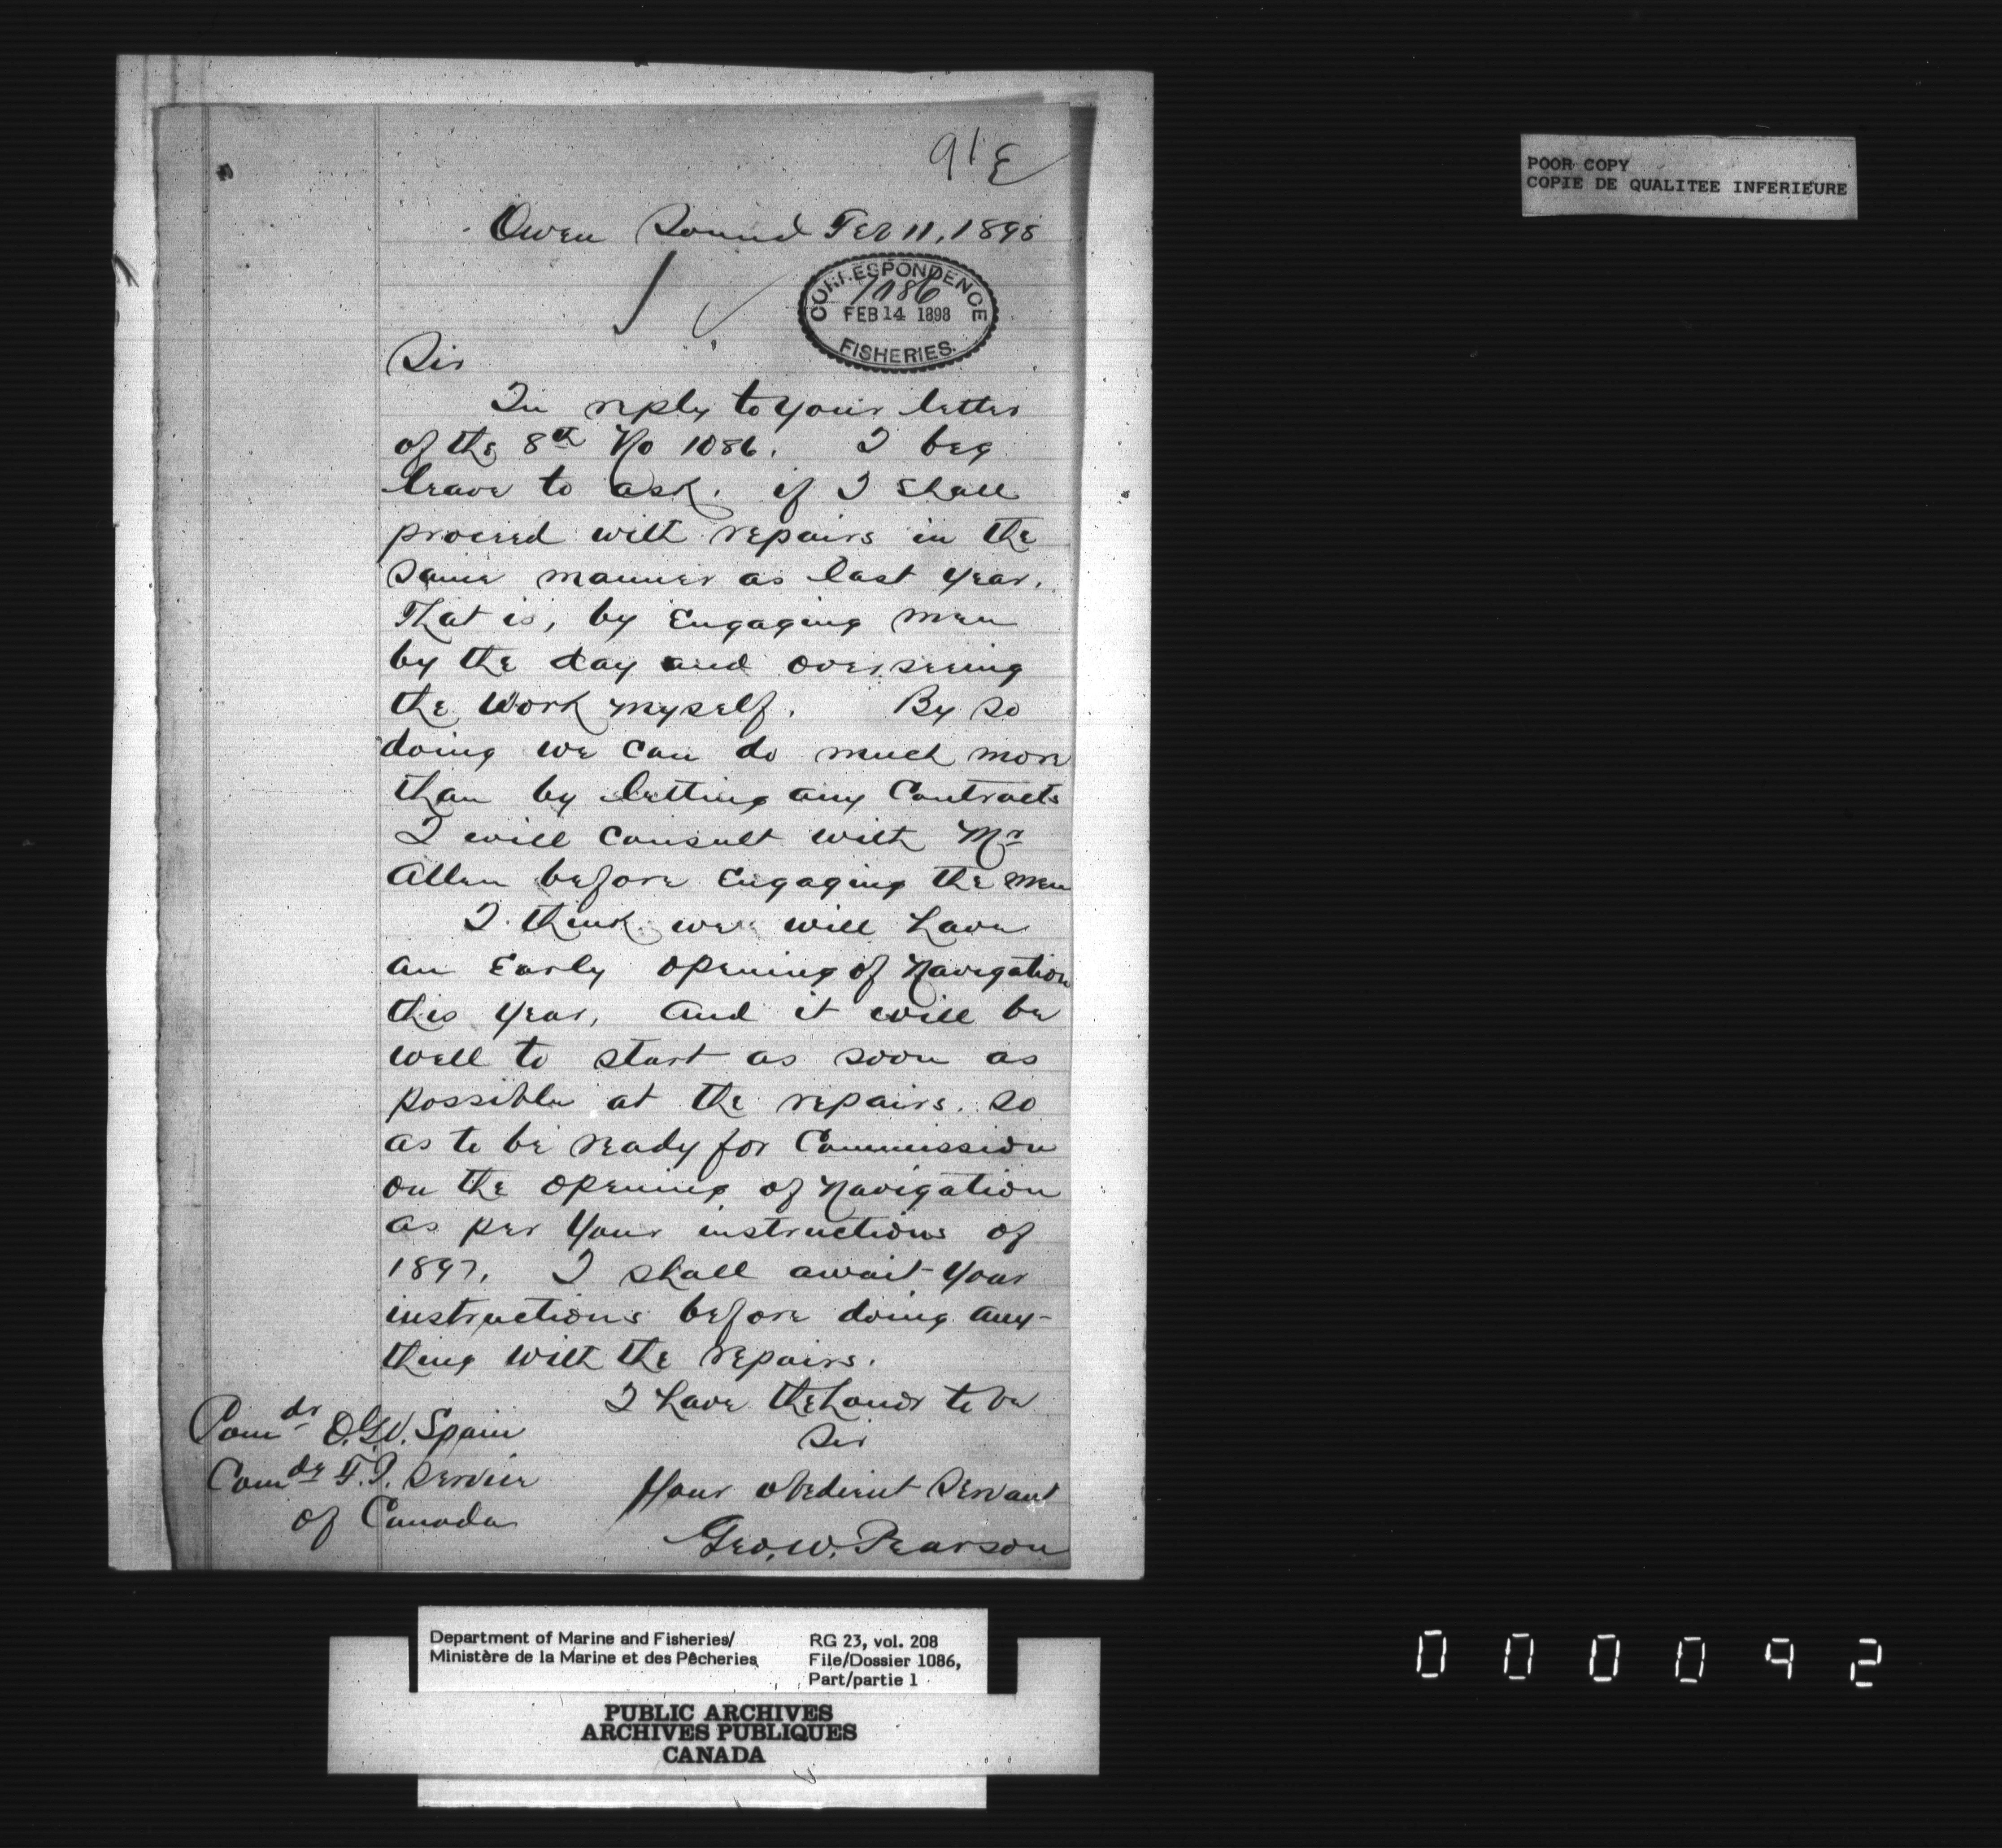 91 E
Owen Sound Feb 11, 1898
CORRESPONDENCE
1086
FEB 14 1898
FISHERIES.
Sir
In reply to your letter
of the 8th No 1086. I beg
leave to ask. if I shall
proceed with repairs in the
same manner as last year.
That is, by Engaging men
by the day and overseeing
the Work myself. By so
doing we can do much more
than by letting any Contracts
I will consult with Mr
Allen before Engaging the men
I think we will have
an Early opening of Navigation
this year, and it will be
well to start as soon as
possible at the repairs. so
as to be ready for Commission
on the opening of Navigation
as per your instructions of
1897. I shall await your
instructions before doing any-
thing with the repairs.
I have the honor to be
Sir
Your obedient Servant
Geo. W. Pearson
Comdr O.G.V. Spain
Comdg F.P. Service
of Canada
POOR COPY
COPIE DE QUALITEE INFERIEURE
Department of Marine and Fisheries/
Ministère de la Marine et des Pêcheries
RG 23, vol. 208
File/Dossier 1086,
Part/partie 1
PUBLIC ARCHIVES
ARCHIVES PUBLIQUES
CANADA
000092